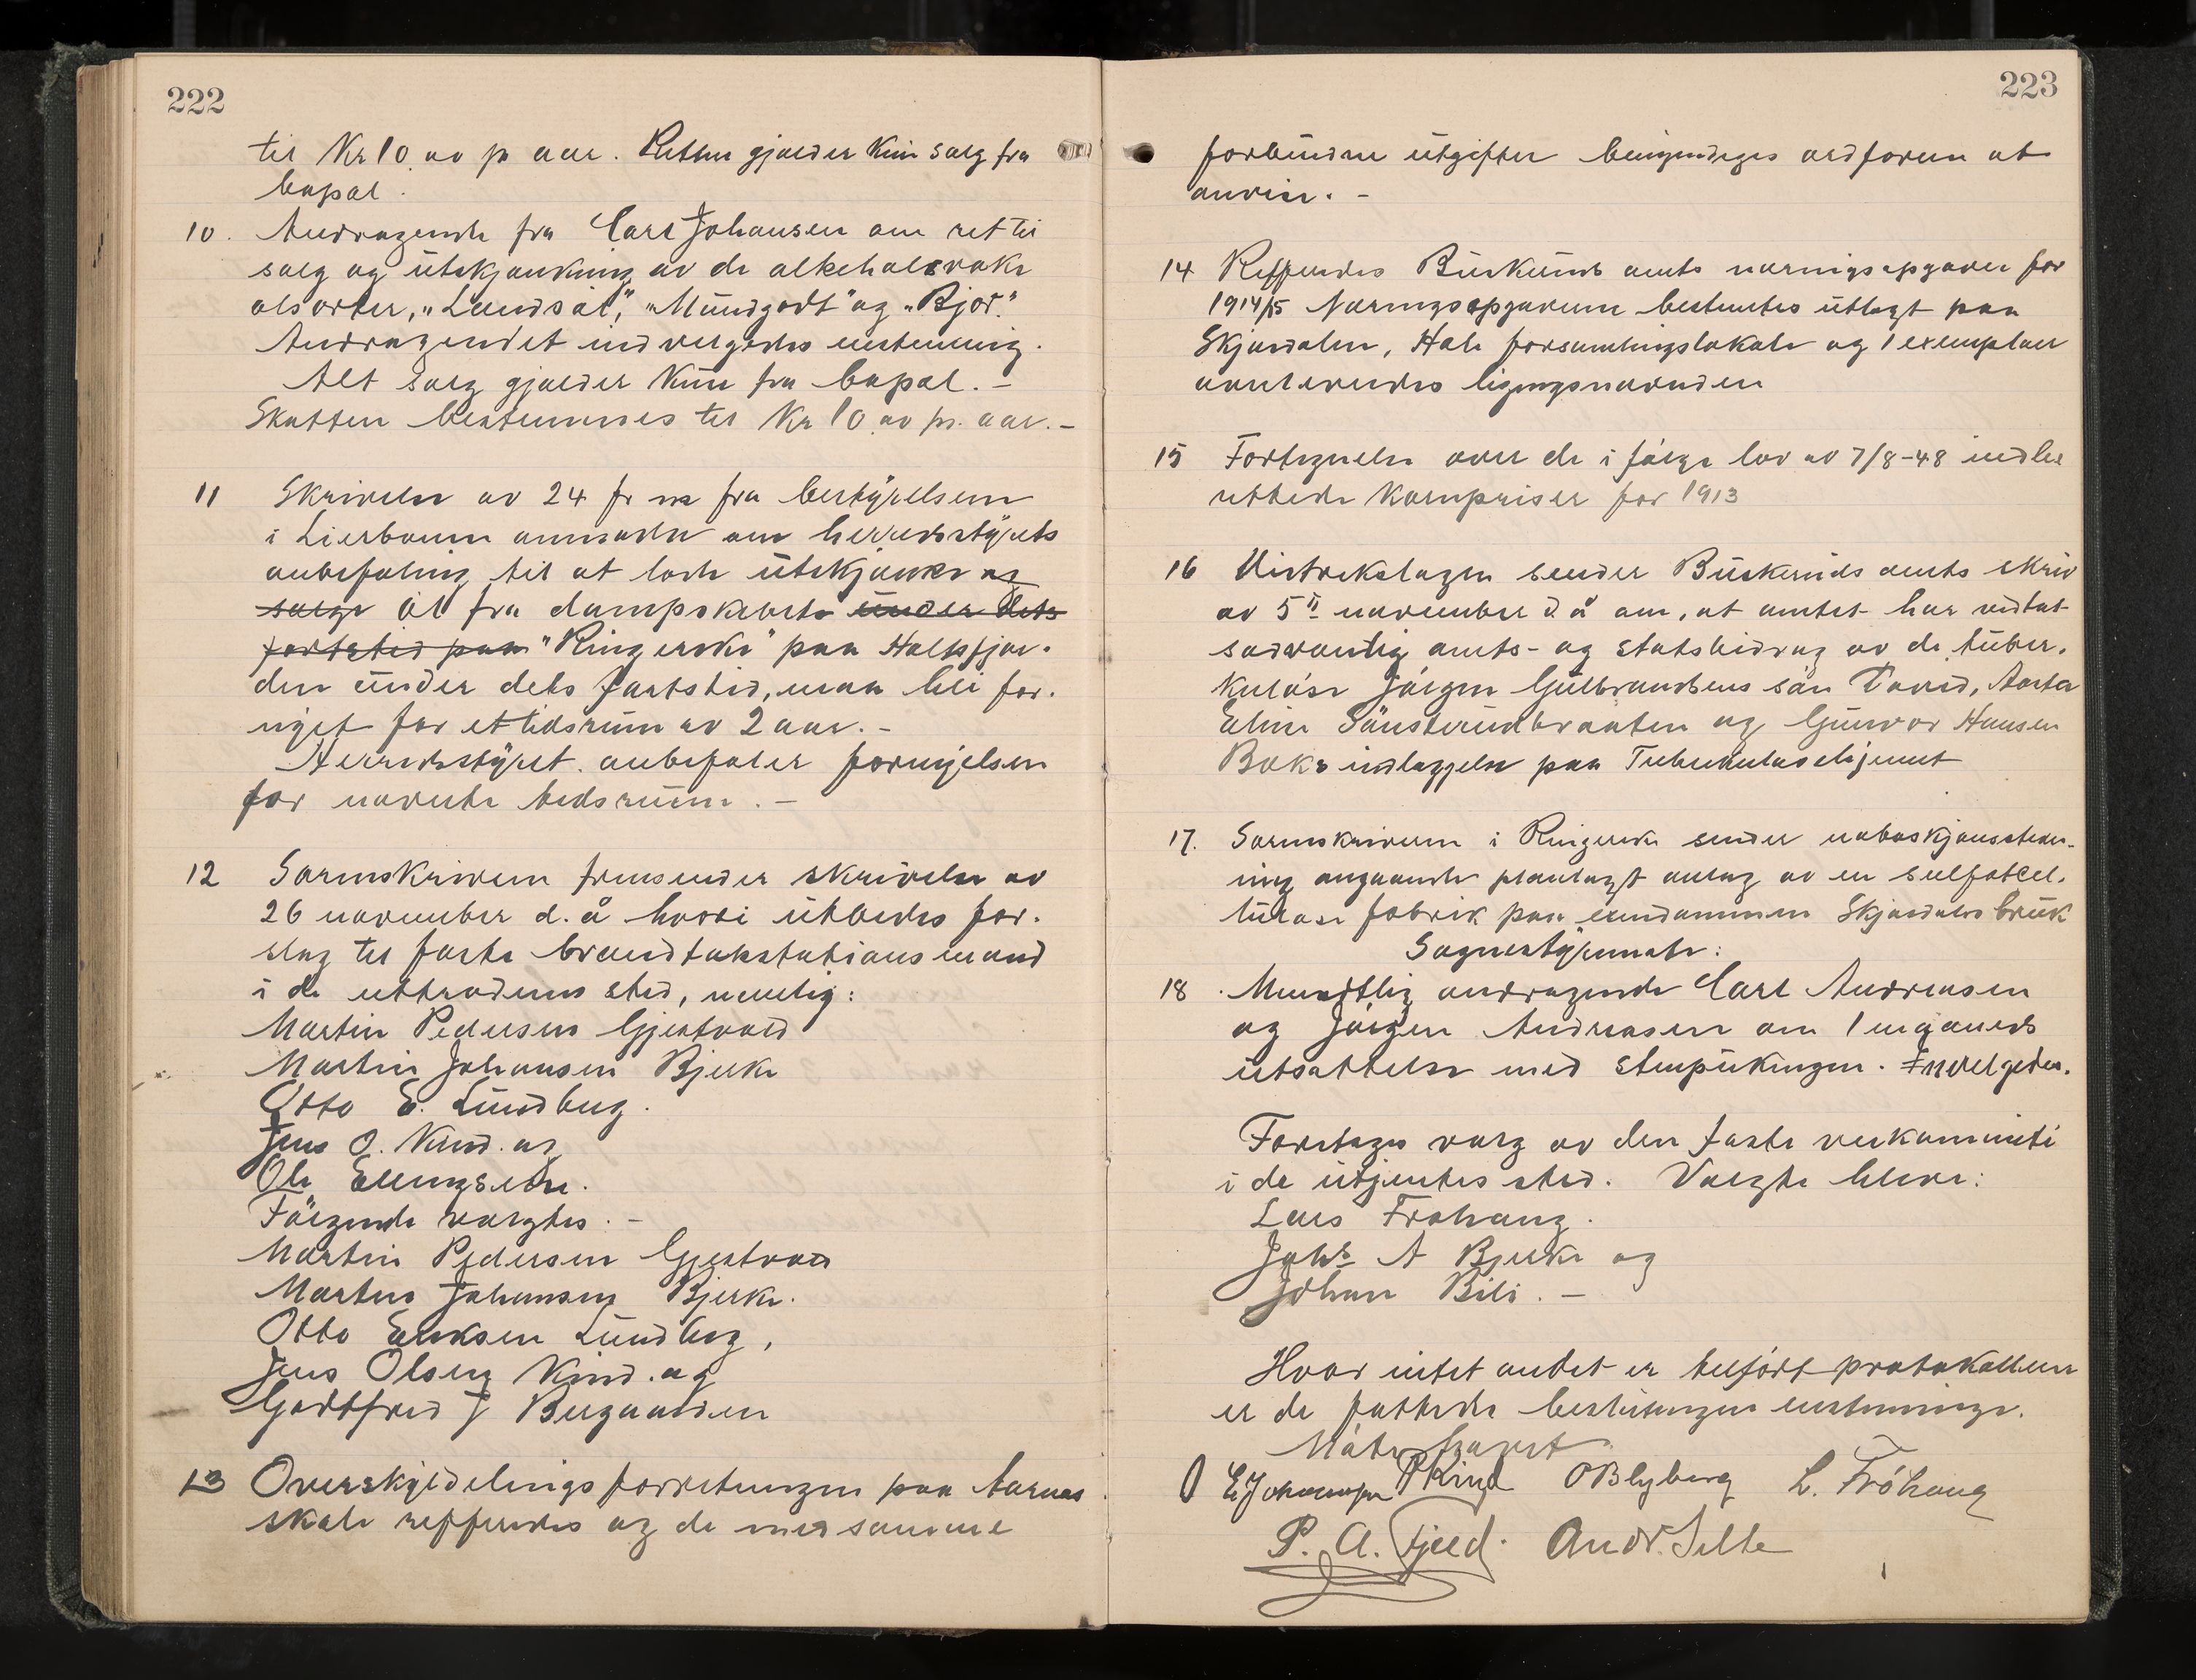 222
til Kr 10.00 pr aar. Retten gjælder kun salg fra
bopæl.
10. Andragende fra Carl Johansen om ret til
salg og utskjænkning av de alkoholsvake
ølsorter, „Landsøl", „Mundgodt" og „Bjor".
Andragendet indvilgedes enstemmig.
Alt salg gjælder kun fra bopæl. –
Skatten bestemmes til Kr 10.00 pr. aar. –
11 Skrivelse av 24 fra bestyrelsen
i Lierbanen ansøker om herredsstyrets
anbefaling til at lade utskjænke og
sælge øl fra dampskibet under dets
fartstid paa "Ringerike" paa Holsfjor-
den under dets fartstid, maa bli for-
nyet for et tidsrum av 2 aar. –
Herredsstyret anbefaler fornyelsen
for nævnte tidsrum. –
12 Sorenskriveren fremsender skrivelse av
26 november d. å hvori utbedes for-
slag til faste brandtakstationsmænd
i de uttrædenes sted, nemlig:
Martin Pedersen Gjestvold
Martin Johansen Bjerke
Otto E. Lundberg.
Jens O. Kind. og
Ole Ellingsen.
Følgende valgtes. –
Martin Pedersen Gjestvold
Martin Johansen Bjerke.
Otto Eriksen Lundberg,
Jens Olsen Kind. og
Godtfred J Bergaarden
13 Overskyldelingsforretningen paa Aarnes
skole refferertes og de med samme
223
forbundne utgifter bemyndiges ordføreren at
anvise. –
14 Refferertes Buskeruds amts næringsopgaver for
1914/15 Næringsopgaverne bestemtes utlagt paa
Skjærdalen, Hole forsamlingslokale og 1 exemplar
oversendes ligningsnævnden
15 Fortegnelse over de i følge lov av 7/8-48 indbe
rettede kornpriser for 1913
16 Distrikslægen sender Buskeruds amts skriv
av 5te november d å om, at amtet har vedtat
sedvanlig amts- og statsbidrag av de tuber-
kuløse Jørgen Gulbrandsens søn David, Marta
Eline Sønsterudbraaten og Gunvor Hansen
Boks indlæggelse paa Tuberkulosehjemmet
17. Sorenskriveren i Ringerike sender naboskjønsstevn-
ing angaaende planlagt anlæg av en sulfatcel-
lulose fabrik paa eiendommen Skjærdalens bruk
Sognestyremøte:
18. Mundtlig andragende Carl Andreasen
og Jørgen Andreasen om 1 maaneds
utsættelse med stenpukingen. Indvilgedes.
Foretages valg av den faste veikommité
i de utjentes sted. Valgte bleve:
Lars Frøhaug.
Johs A Bjerke og
Johan Bili. –
Hvor intet andet er tilført protokollen
er de fattede beslutninger enstemmige.
Møtet hævet
E. Johannessen P Kind O Blyberg L. Frøhaug
P. A. Fjeld. Andr. Selte